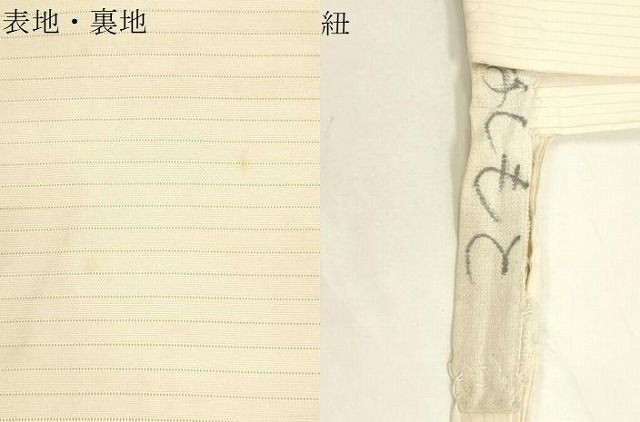 表地・裏地
紐
しもと